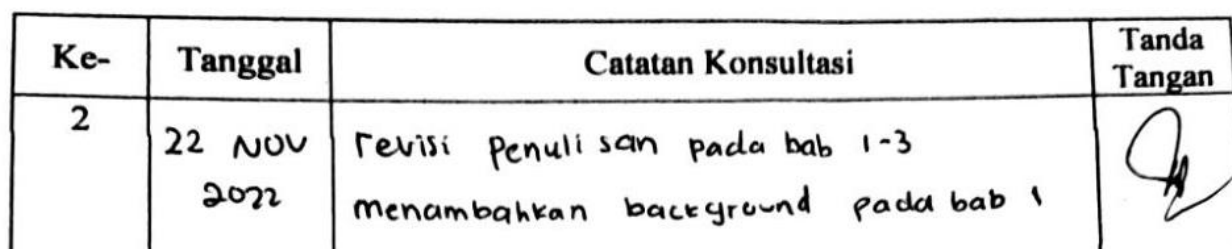 Ke- Tanggal Catatan Konsultasi Tanda
Tangan
2 22 NOV revisi penulisan pada bab 1-3
2022 menambahkan background pada bab 1